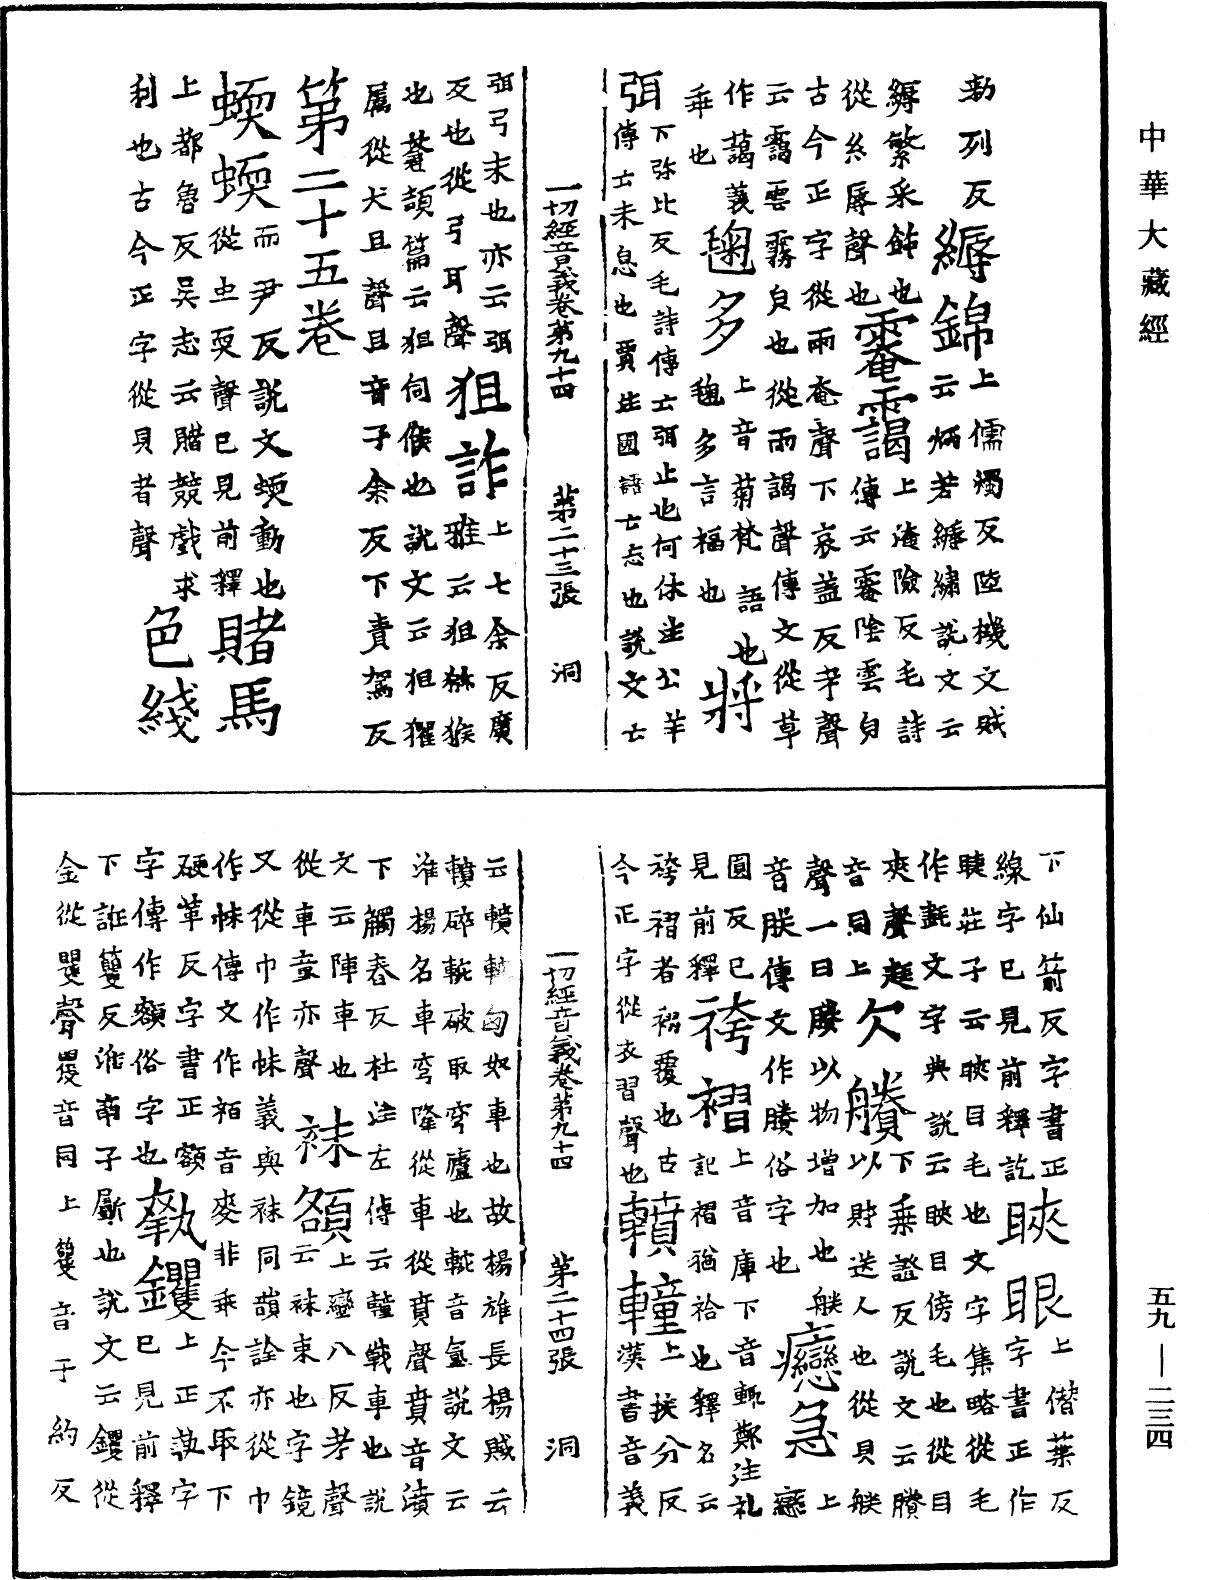 中華大藏經
勑列反縟錦上儒燭反陸機文賦
云炳若縟繡說文云
縟繁采飾也
從糸辱聲也䨄靄上淹險反毛詩
傳云䨄陰雲皃
古今正字從雨奄聲下哀蓋反考聲
云靄雲霧皃也從雨謁聲傳文從草
作藹義乖也
䞤多上音菊梵語也
䞤多言福也
將弭下弥比反毛詩傳云弭止也何休注公羊
傳云未息也賈注國語云忘也說文云
一切經音義卷第九十四 第二十三張 洞
弭弓末也亦云弭
反也從弓耳聲狙詐上七余反廣
雅云狙獼猴
也蒼頡篇云狙伺候也說文云狙玃
屬從犬且聲且音子余反下責駕反
第二十五卷
蝡蝡而尹反說文蝡動也
從虫耎聲已見前釋賭馬
上都魯反吳志云賭競戲求
利也古今正字從貝者聲色綫
下仙箭反字書正
線字已見前釋訖䀹眼上僭葉反
字書正作
睫莊子云䀹目毛也文字集略從毛
作㲠文字典說云䀹目傍毛也從目
夾聲欠䞉下乘證反說文云賸
音同上以貯送人也從貝朕
聲一曰賸以物增加也朕上
音朕傳文作賸俗字也戀急戀
圓反已見前釋袴褶上音庫下音輒鄭注礼
記褶猶袷也釋名云
袴褶者褶覆也古
今正字從衣習聲也轒䡴上扶分反
漢書音義
一切經音義卷第九十四 第二十四張 洞
云轒轀匈奴車也故楊雄長楊賦云
轒碎轀破取穹廬也轀音氳說文云
淮楊名車穹隆從車從賁聲賁音濆
下觸舂反杜注左傳云䡴戰車也說
文云陣車也
從車童亦聲袜額上巒八反考聲
云袜束也字鏡
又從巾作帓義與袜同韻詮亦從巾
作帓傳文作袹音麥非乘今不取下
硬革反字書正額
字傳作額俗字也執钁上正執字
已見前釋
下誑籰反淮南子斸也說文云钁從
金從矍聲矍音同上籰音于約反
五九—二三四